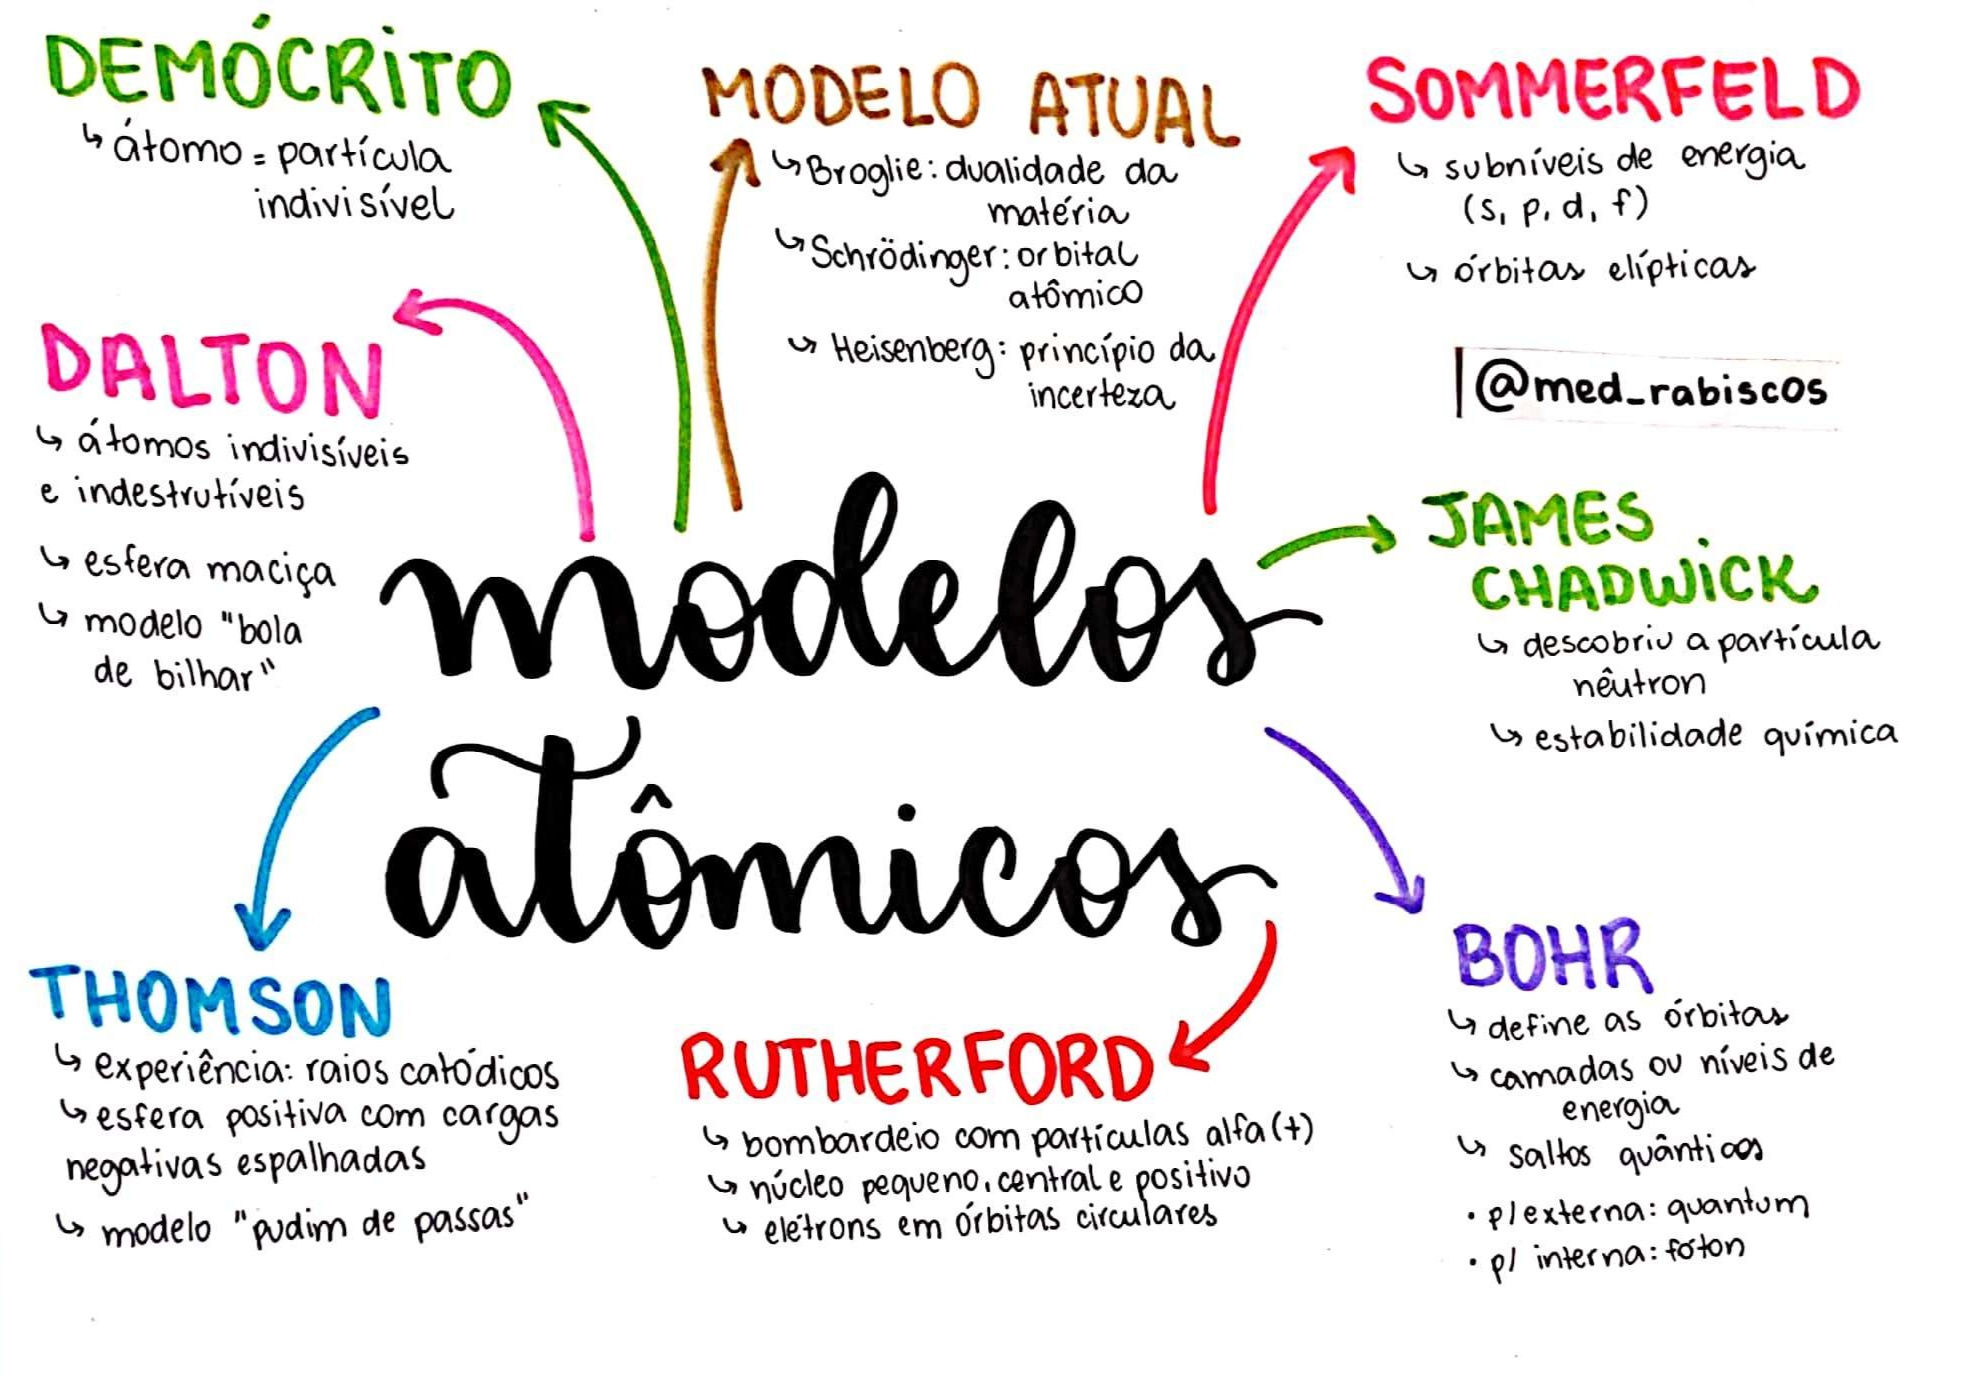 DEMÓCRITO
↳ átomo = partícula
indivisível
MODELO ATUAL
↳ Broglie: dualidade da
matéria
↳ Schrödinger: orbital
atômico
↳ Heisenberg: princípio da
incerteza
SOMMERFELD
↳ subníveis de energia
(s, p, d, f)
↳ órbitas elípticas
@med_rabiscos
DALTON
↳ átomos indivisíveis
e indestrutíveis
↳ esfera maciça
↳ modelo "bola
de bilhar"
modelos
atômicos
JAMES
CHADWICK
↳ descobriu a partícula
nêutron
↳ estabilidade química
THOMSON
↳ experiência: raios catódicos
↳ esfera positiva com cargas
negativas espalhadas
↳ modelo "pudim de passas"
RUTHERFORD
↳ bombardeio com partículas alfa (+)
↳ núcleo pequeno, central e positivo
↳ elétrons em órbitas circulares
BOHR
↳ define as órbitas
↳ camadas ou níveis de
energia
↳ saltos quânticos
• p/ externa: quantum
• p/ interna: fóton